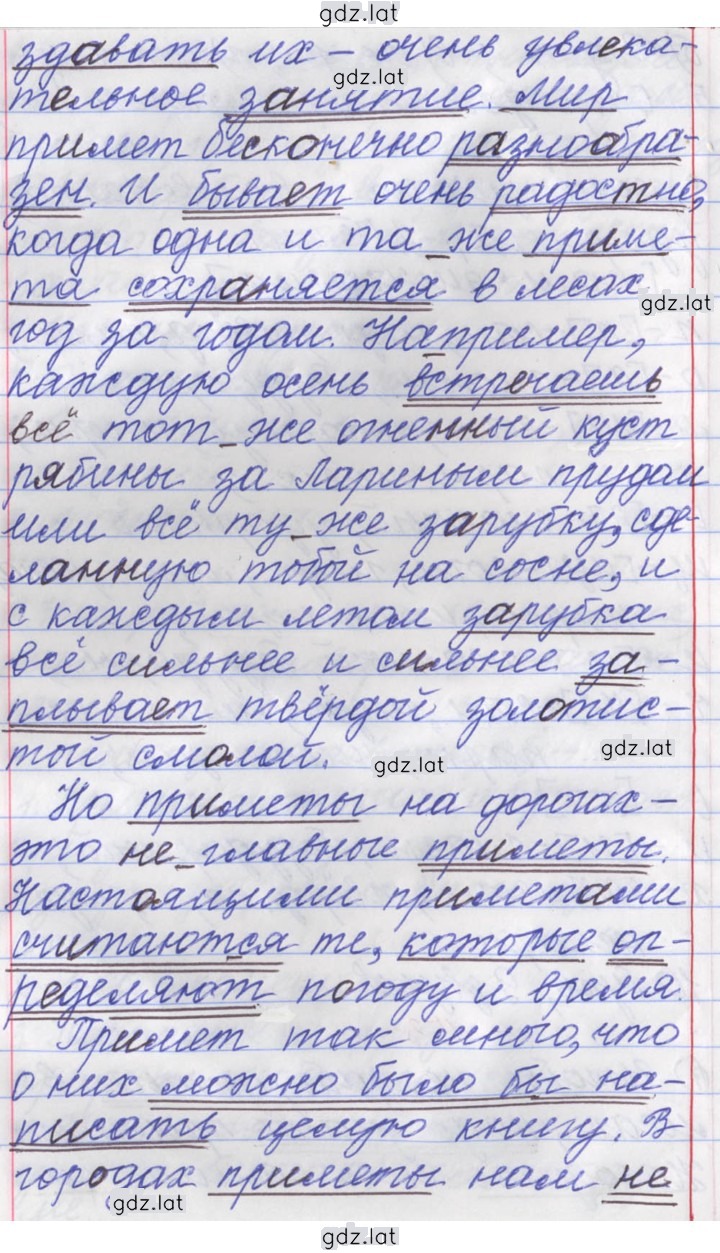 gdz.lat
здавать их – очень увлека-
gdz.lat
тельное занятие. Мир
примет бесконечно разнообра-
зен. И бывает очень радостно,
когда одна и та же приме-
та сохраняется в лесах
gdz.lat
год за годом. Например,
каждую осень встречаешь
всё тот же огненный куст
рябины за Лариным прудом
или всё ту же зарубку, сде-
ланную тобой на сосне, и
с каждым летом зарубка
всё сильнее и сильнее за-
плывает твёрдой золотис-
той смолой.
gdz.lat
gdz.lat
Но приметы на дорогах –
это не главные приметы.
Настоящими приметами
считаются те, которые оп-
ределяют погоду и время.
Примет так много, что
о них можно было бы на-
писать целую книгу. В
городах приметы нам не
gdz.lat
gdz.lat
gdz.lat